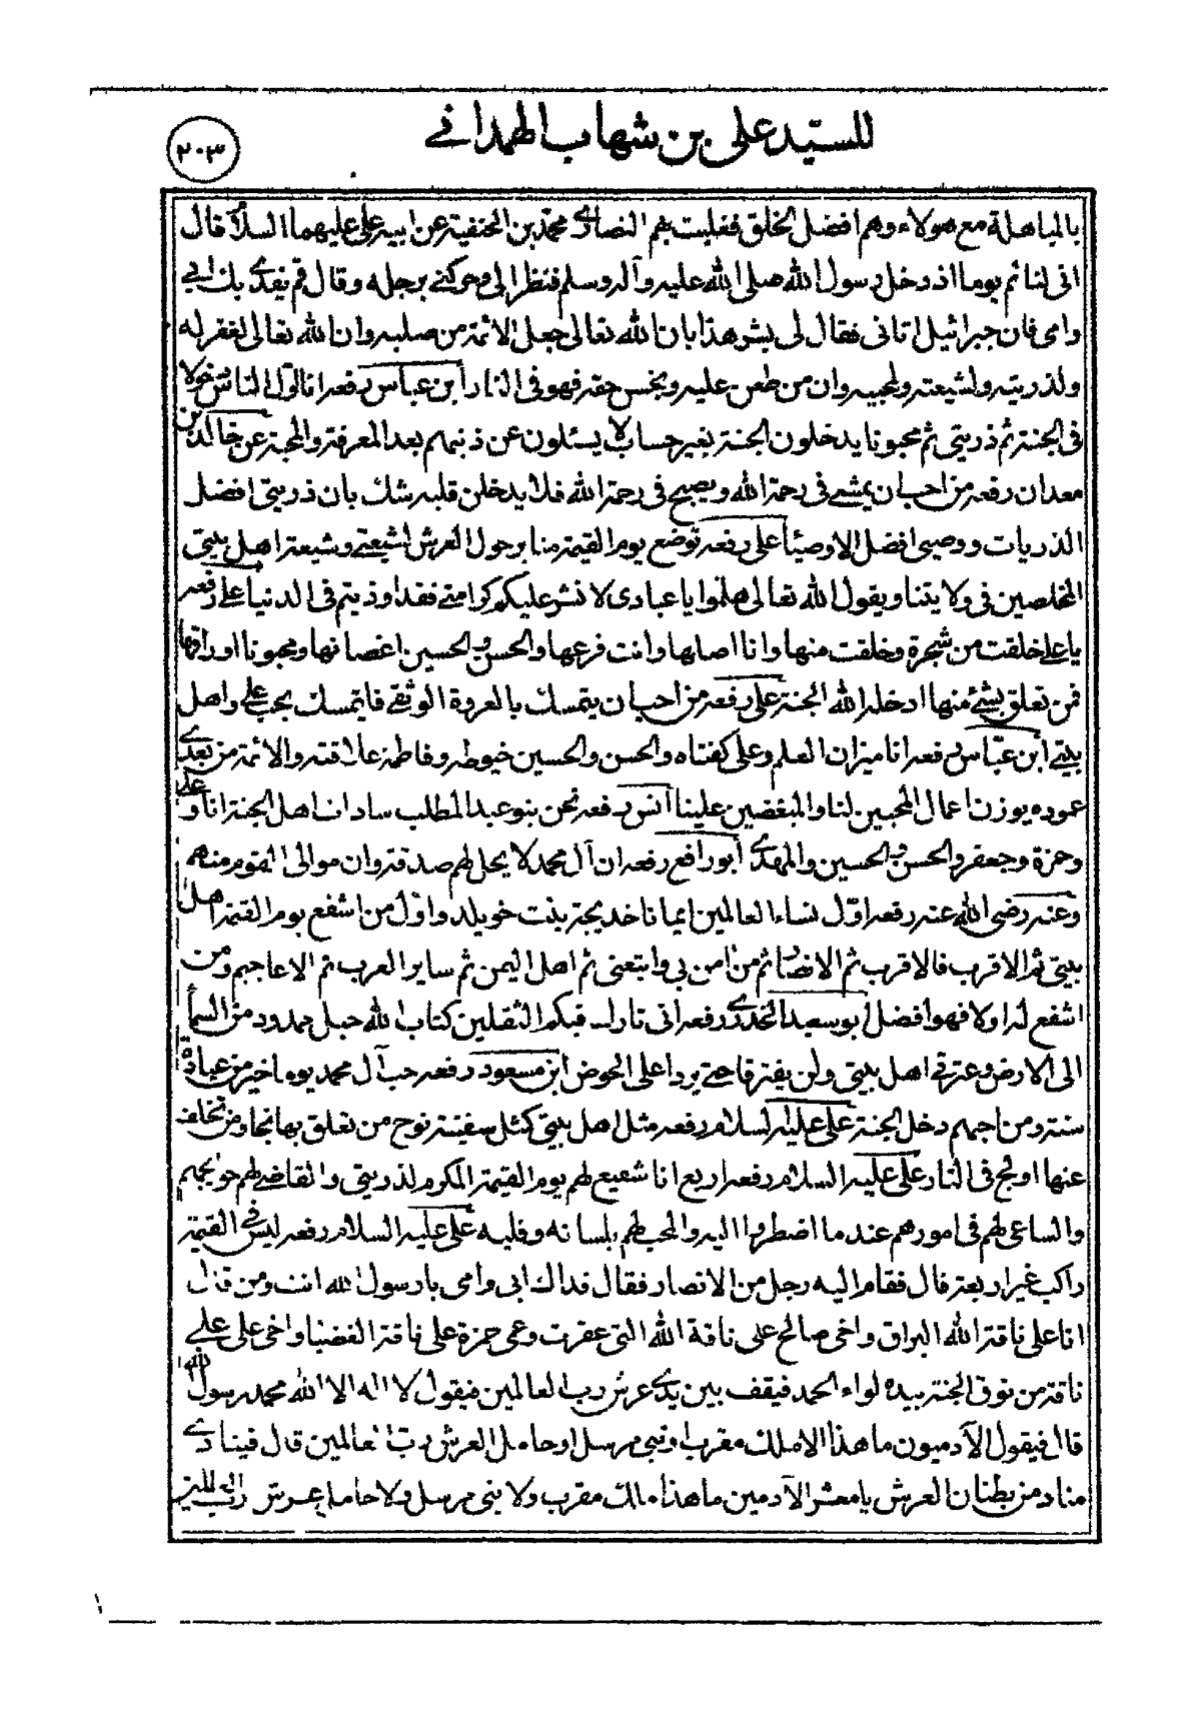 للسيد على بن شهاب الهمدانے
٢٠٣
بالمباهلة مع هولاء وهم افضل الخلق فغلبت بهم النصارى محمد بن الحنفية عن ابيه على عليهما السلام قال
انى لنائم يوما اذ دخل رسول الله صلى الله عليه وآله وسلم فنظر الى وحركنے برجله وقال قم يفدى بك ابى
وامى فان جبرائيل اتانى فقال لى بشر هذا بان الله تعالى جعل الائمة من صلبه وان الله تعالى لغفر له
ولذريته ولشيعته ولمحبيه وان من طعن عليه وبخس حقه فهو فى النار ابن عباس رفعه انا اول الناس دخولا
فى الجنة ثم ذريتى ثم محبونا يدخلون الجنة بغير حساب لا يسئلون عن ذنبهم بعد المعرفة والمحبة عن خالد بن
معدان رفعه من احب ان يمشے فى رحمة الله ويصبح فى رحمة الله فلا يدخلن قلبه شك بان ذريتى افضل
الذريات ووصيى افضل الاوصيا على رفعه توضع يوم القيمة منابر حول العرش لشيعتے وشيعة اهل بيتى
المخلصين فى ولايتنا ويقول الله تعالى هلموا يا عبادى لانشر عليكم كرامتے فقد اوذيتم فى الدنيا على رفعه
يا على خلقت من شجرة وخلقت منها وانا اصلها وانت فرعها والحسن والحسين اغصانها ومحبونا اوراقها
فمن تعلق بشئ منها ادخله الله الجنة على رفعه من احب ان يتمسك بالعروة الوثقے فليتمسك بحب على واهل
بيتے ابن عباس رفعه انا ميزان العلم وعلى كفتاه والحسن والحسين خيوطه وفاطمة علاقته والائمة من بعدى
عموده يوزن اعمال المحبين لنا والمبغضين علينا انس رفعه نحن بنو عبد المطلب سادات اهل الجنة انا وعلى
وحمزة وجعفر والحسن والحسين والمهدى ابو رافع رفعه ان آل محمد لا يحل لهم صدقة وان موالى القوم منهم
وعنه رضى الله عنه رفعه اول نساء العالمين ايمانا خديجة بنت خويلد واول من اشفع يوم القيمة اهل
بيتى ثم الاقرب فالاقرب ثم الانصار ثم من امن بى واتبعنى ثم اهل اليمن ثم ساير العرب ثم الاعاجم ومن
اشفع له اولا فهو افضل ابو سعيد الخدرى رفعه انى تارك فيكم الثقلين كتاب الله حبل ممدود من السماء
الى الارض وعترتى اهل بيتى ولن يفترقا حتے يردا على الحوض ابن مسعود رفعه حب آل محمد يوما خير من عبادة
سنة ومن احبهم دخل الجنة على عليه السلام رفعه مثل اهل بيتى كمثل سفينة نوح من تعلق بها نجا ومن تخلف
عنها اولج فى النار على عليه السلام رفعه اربع انا شفيع لهم يوم القيمة المكرم لذريتى والقاضے لهم حوايجهم
والساعى لهم فى امورهم عند ما اضطروا اليه والمحب لهم بلسانه وقلبه على عليه السلام رفعه ليس فى القيمة
راكب غير اربعة قال فقام اليه رجل من الانصار فقال فداك ابى وامى يا رسول الله انت ومن قال
انا على ناقة الله البراق واخى صالح على ناقة الله التى عقرت وعمى حمزة على ناقة الغضبا واخى على علے
ناقة من نوق الجنة بيده لواء الحمد فيقف بين يدى عرش رب العالمين فيقول لا اله الا الله محمد رسول الله
قال فيقول الآدميون ما هذا الا ملك مقرب او نبى مرسل او حامل العرش رب العالمين قال فينادے
مناد من بطنان العرش يا معشر الآدمين ما هذا ملك مقرب ولا نبى مرسل ولا حامل عرش رب